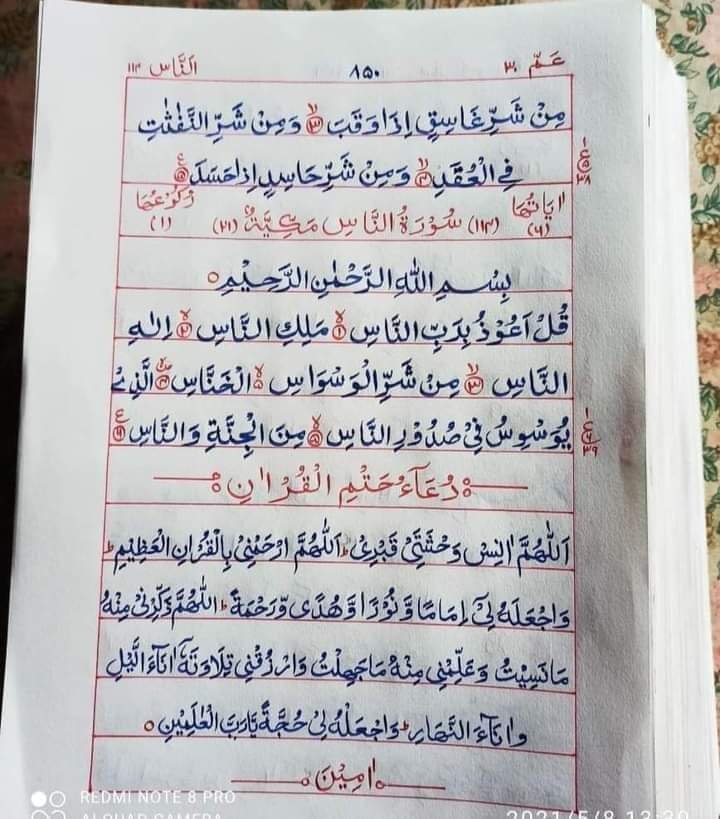 عَمّ ٣٠ ٨٥٠ اَلنَّاس ١١٤
مِنْ شَرِّ غَاسِقٍ اِذَا وَقَبَ ۙ﴿۳﴾ وَمِنْ شَرِّ النَّفّٰثٰتِ
فِى الْعُقَدِ ۙ﴿۴﴾ وَمِنْ شَرِّ حَاسِدٍ اِذَا حَسَدَ ﴿۵﴾
اٰيَاتُهَا (٦) (١١٤) سُوْرَةُ النَّاسِ مَكِّيَّةٌ (٢١) رُكُوْعُهَا (١)
بِسْمِ اللّٰهِ الرَّحْمٰنِ الرَّحِيْمِ ○
قُلْ اَعُوْذُ بِرَبِّ النَّاسِ ۙ﴿۱﴾ مَلِكِ النَّاسِ ۙ﴿۲﴾ اِلٰهِ
النَّاسِ ۙ﴿۳﴾ مِنْ شَرِّ الْوَسْوَاسِ ۙ الْخَنَّاسِ ۙ﴿۴﴾ الَّذِىْ
يُوَسْوِسُ فِىْ صُدُوْرِ النَّاسِ ۙ﴿۵﴾ مِنَ الْجِنَّةِ وَالنَّاسِ ﴿۶﴾
دُعَآءُ خَتْمِ الْقُرْاٰنِ
اَللّٰهُمَّ اٰنِسْ وَحْشَتِىْ قَبْرِىْ ؕ اَللّٰهُمَّ ارْحَمْنِىْ بِالْقُرْاٰنِ الْعَظِيْمِ ؕ
وَاجْعَلْهُ لِىْٓ اِمَامًا وَّنُوْرًا وَّهُدًى وَّرَحْمَةً ؕ اَللّٰهُمَّ ذَكِّرْنِىْ مِنْهُ
مَا نَسِيْتُ وَعَلِّمْنِىْ مِنْهُ مَا جَهِلْتُ وَارْزُقْنِىْ تِلَاوَتَهٗٓ اٰنَآءَ الَّيْلِ
وَاٰنَآءَ النَّهَارِ ؕ وَاجْعَلْهُ لِىْ حُجَّةً يَّارَبَّ الْعٰلَمِيْنَ ○
اٰمِيْنَ
REDMI NOTE 8 PRO
AI QUAD CAMERA
2021/5/8 13:30